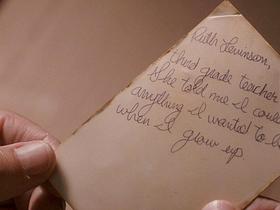 Ruth Levinson,
third grade teacher.
She told me I could
anything I wanted to be
when I grew up